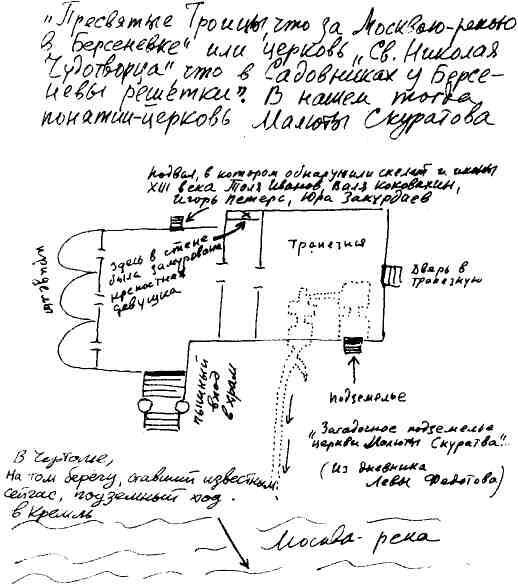 „Пресвятые Троицы, что за Москвою-рекою
в Берсеневке“ или церковь „Св. Николая
Чудотворца“ что в Садовниках у Берсе-
невы решетки“. В нашем тогда
понятии-церковь Малюты Скуратова
Подвал, в котором обнаружили скелет и иконы
XIII века Толя Иванов, Валя Коковихин,
Игорь Петерс, Юра Закурдаев
Здесь в стене
была замурована
крепостная
девушка
Трапезная
Дверь в
трапезную
алтарики
пышный
вход
в храм
подземелье
„Загадочное подземелье
церкви Малюты Скуратва“...
(Из дневника
Левы Федотова)
В Чертолье,
на том берегу, ставший известным
сейчас, подземный ход
в Кремль
Москва-река